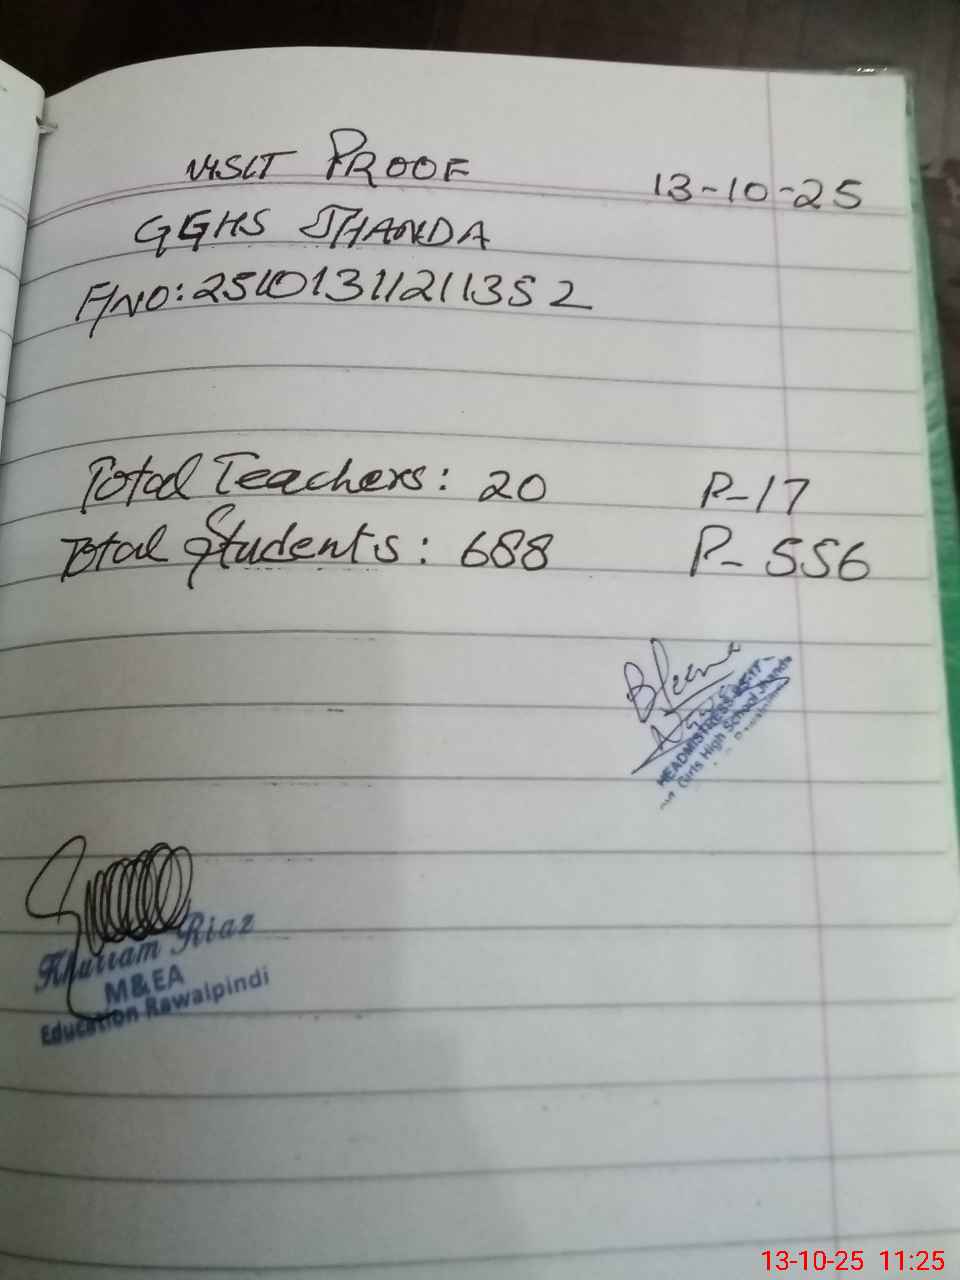 VISIT PROOF 13-10-25
GGHS JHANDA
F/NO: 251013112111352
Total Teachers: 20 P-17
Total Students: 688 P- 556
HEADMISTRESS
Girls High School Jhanda
Khurram Riaz
M&EA
Education Rawalpindi
13-10-25 11:25